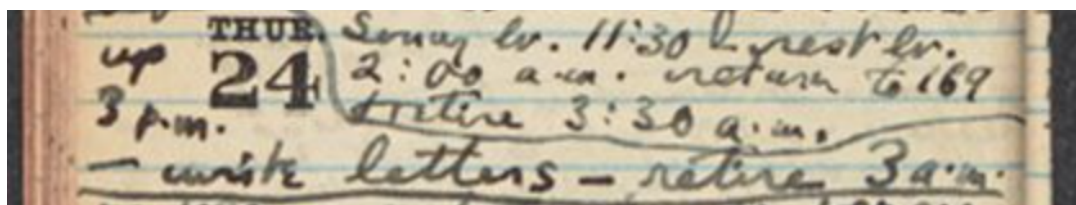 THUR. Sonny lv. 11:30 & rest lv.
up 24 2:00 a.m. return to 169
3 p.m. & retire 3:30 a.m.
— write letters — retire 3 a.m.